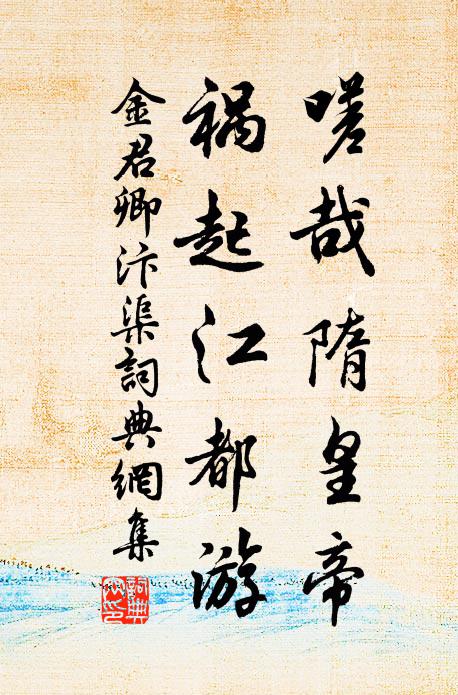 嗟哉隋皇帝
祸起江都游
金君卿汴渠詞典網集